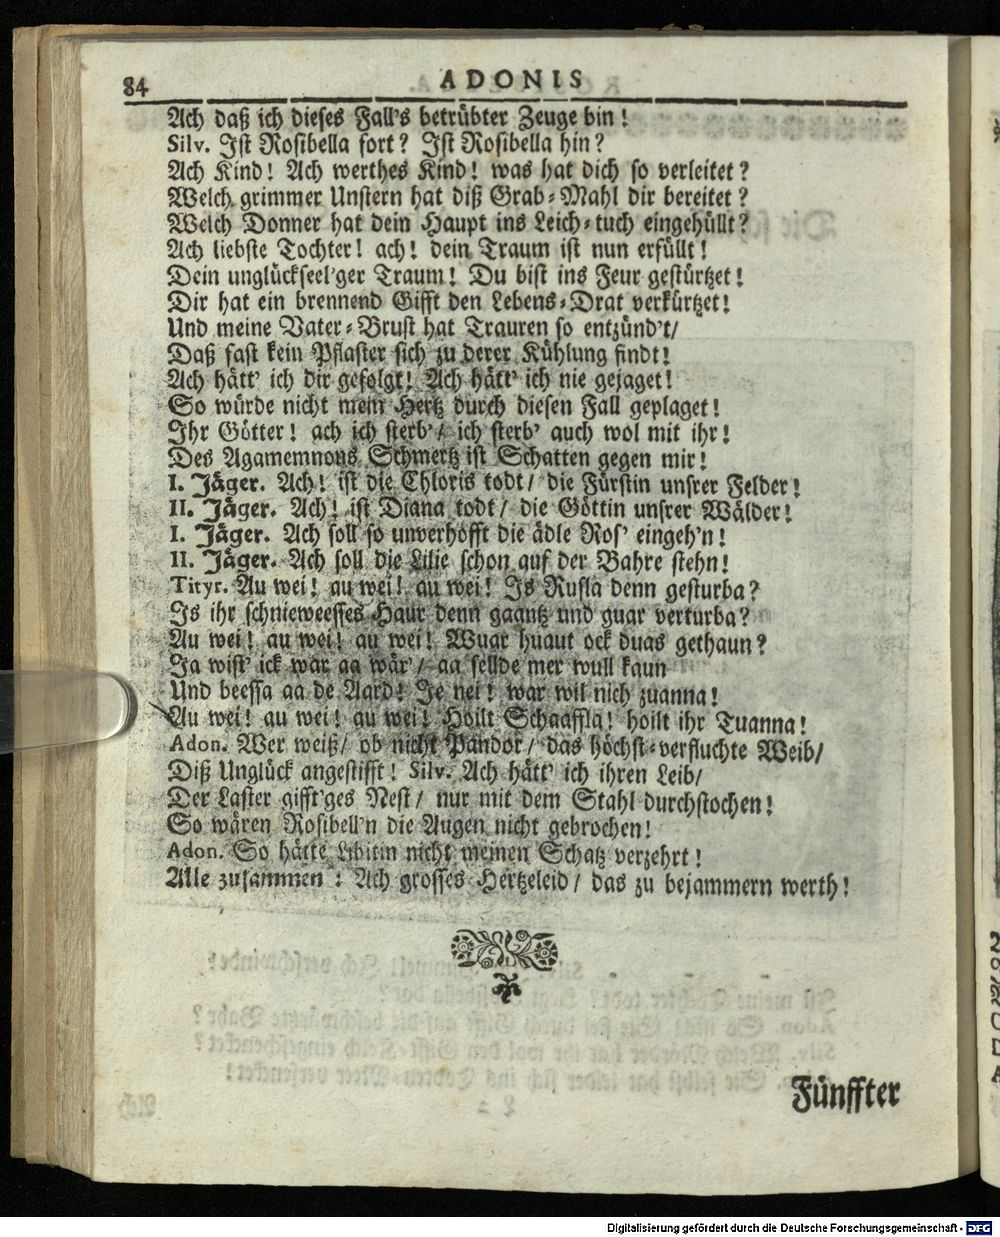 84 ADONIS
Ach daß ich dieses Fall's betrübter Zeuge bin!
Silv. Ist Rosibella fort? Ist Rosibella hin?
Ach Kind! Ach werthes Kind! was hat dich so verleitet?
Welch grimmer Unstern hat diß Grab-Mahl dir bereitet?
Welch Donner hat dein Haupt ins Leich-tuch eingehüllt?
Ach liebste Tochter! ach! dein Traum ist nun erfüllt!
Dein unglückseel'ger Traum! Du bist ins Feur gestürtzet!
Dir hat ein brennend Gifft den Lebens-Drat verkürtzet!
Und meine Vater-Brust hat Trauren so entzünd't/
Daß fast kein Pflaster sich zu derer Kühlung findt!
Ach hätt' ich dir gefolgt! Ach hätt' ich nie gejaget!
So würde nicht mein Hertz durch diesen Fall geplaget!
Ihr Götter! ach ich sterb'/ ich sterb' auch wol mit ihr!
Des Agamemnons Schmertz ist Schatten gegen mir!
I. Jäger. Ach! ist die Chloris todt/ die Fürstin unsrer Felder!
II. Jäger. Ach! ist Diana todt/ die Göttin unsrer Wälder!
I. Jäger. Ach soll so unverhofft die ädle Ros' eingeh'n!
II. Jäger. Ach soll die Lilie schon auf der Bahre stehn!
Tityr. Au wei! au wei! au wei! Is Rusla denn gesturba?
Is ihr schnieweesses Haur denn gaantz und guar verturba?
Au wei! au wei! au wei! Wuar huaut ock duas gethaun?
Ja wist' ick war aa wär'/ aa sellde mer wull kaun
Und beessa aa de Aard! Je nei! war wil nich zuanna!
Au wei! au wei! au wei! Hoilt Schaaffla! hoilt ihr Tuanna!
Adon. Wer weiß/ ob nicht Pandor/ das höchst-verfluchte Weib/
Diß Unglück angestifft! Silv. Ach hätt' ich ihren Leib/
Der Laster gifft'ges Nest/ nur mit dem Stahl durchstochen!
So wären Rosibell'n die Augen nicht gebrochen!
Adon. So hätte Libitin nicht meinen Schatz verzehrt!
Alle zusammen: Ach grosses Hertzeleid/ das zu bejammern werth!
Fünffter
Digitalisierung gefördert durch die Deutsche Forschungsgemeinschaft - DFG